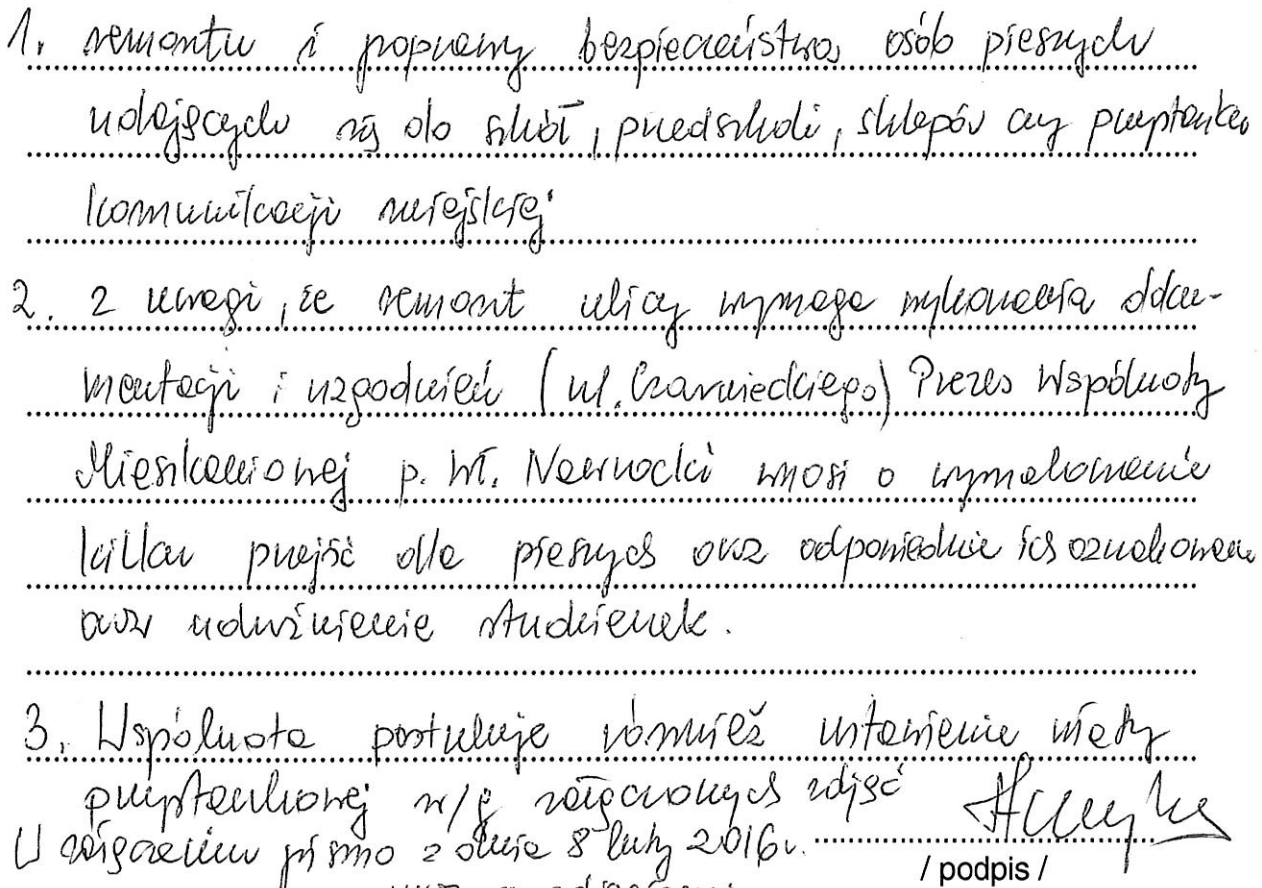 1. remontu i poprawy bezpieczeństwa osób pieszych
udających się do szkół, przedszkoli, sklepów czy przystanków
komunikacji miejskiej
2. Z uwagi, że remont ulicy wymaga wykonania doku-
mentacji i uzgodnień (ul. Czarnieckiego) Prezes Wspólnoty
Mieszkaniowej p. Wł. Nawrocki wnosi o wymalowanie
kilku przejść dla pieszych oraz odpowiednie ich oznakowanie
oraz udrożnienie studzienek.
3. Wspólnota postuluje również ustawienie wiaty
przystankowej w/g załączonych zdjęć
W załączeniu pismo z dnia 8 luty 2016r.
/ podpis /
wraz ze zdjęciami